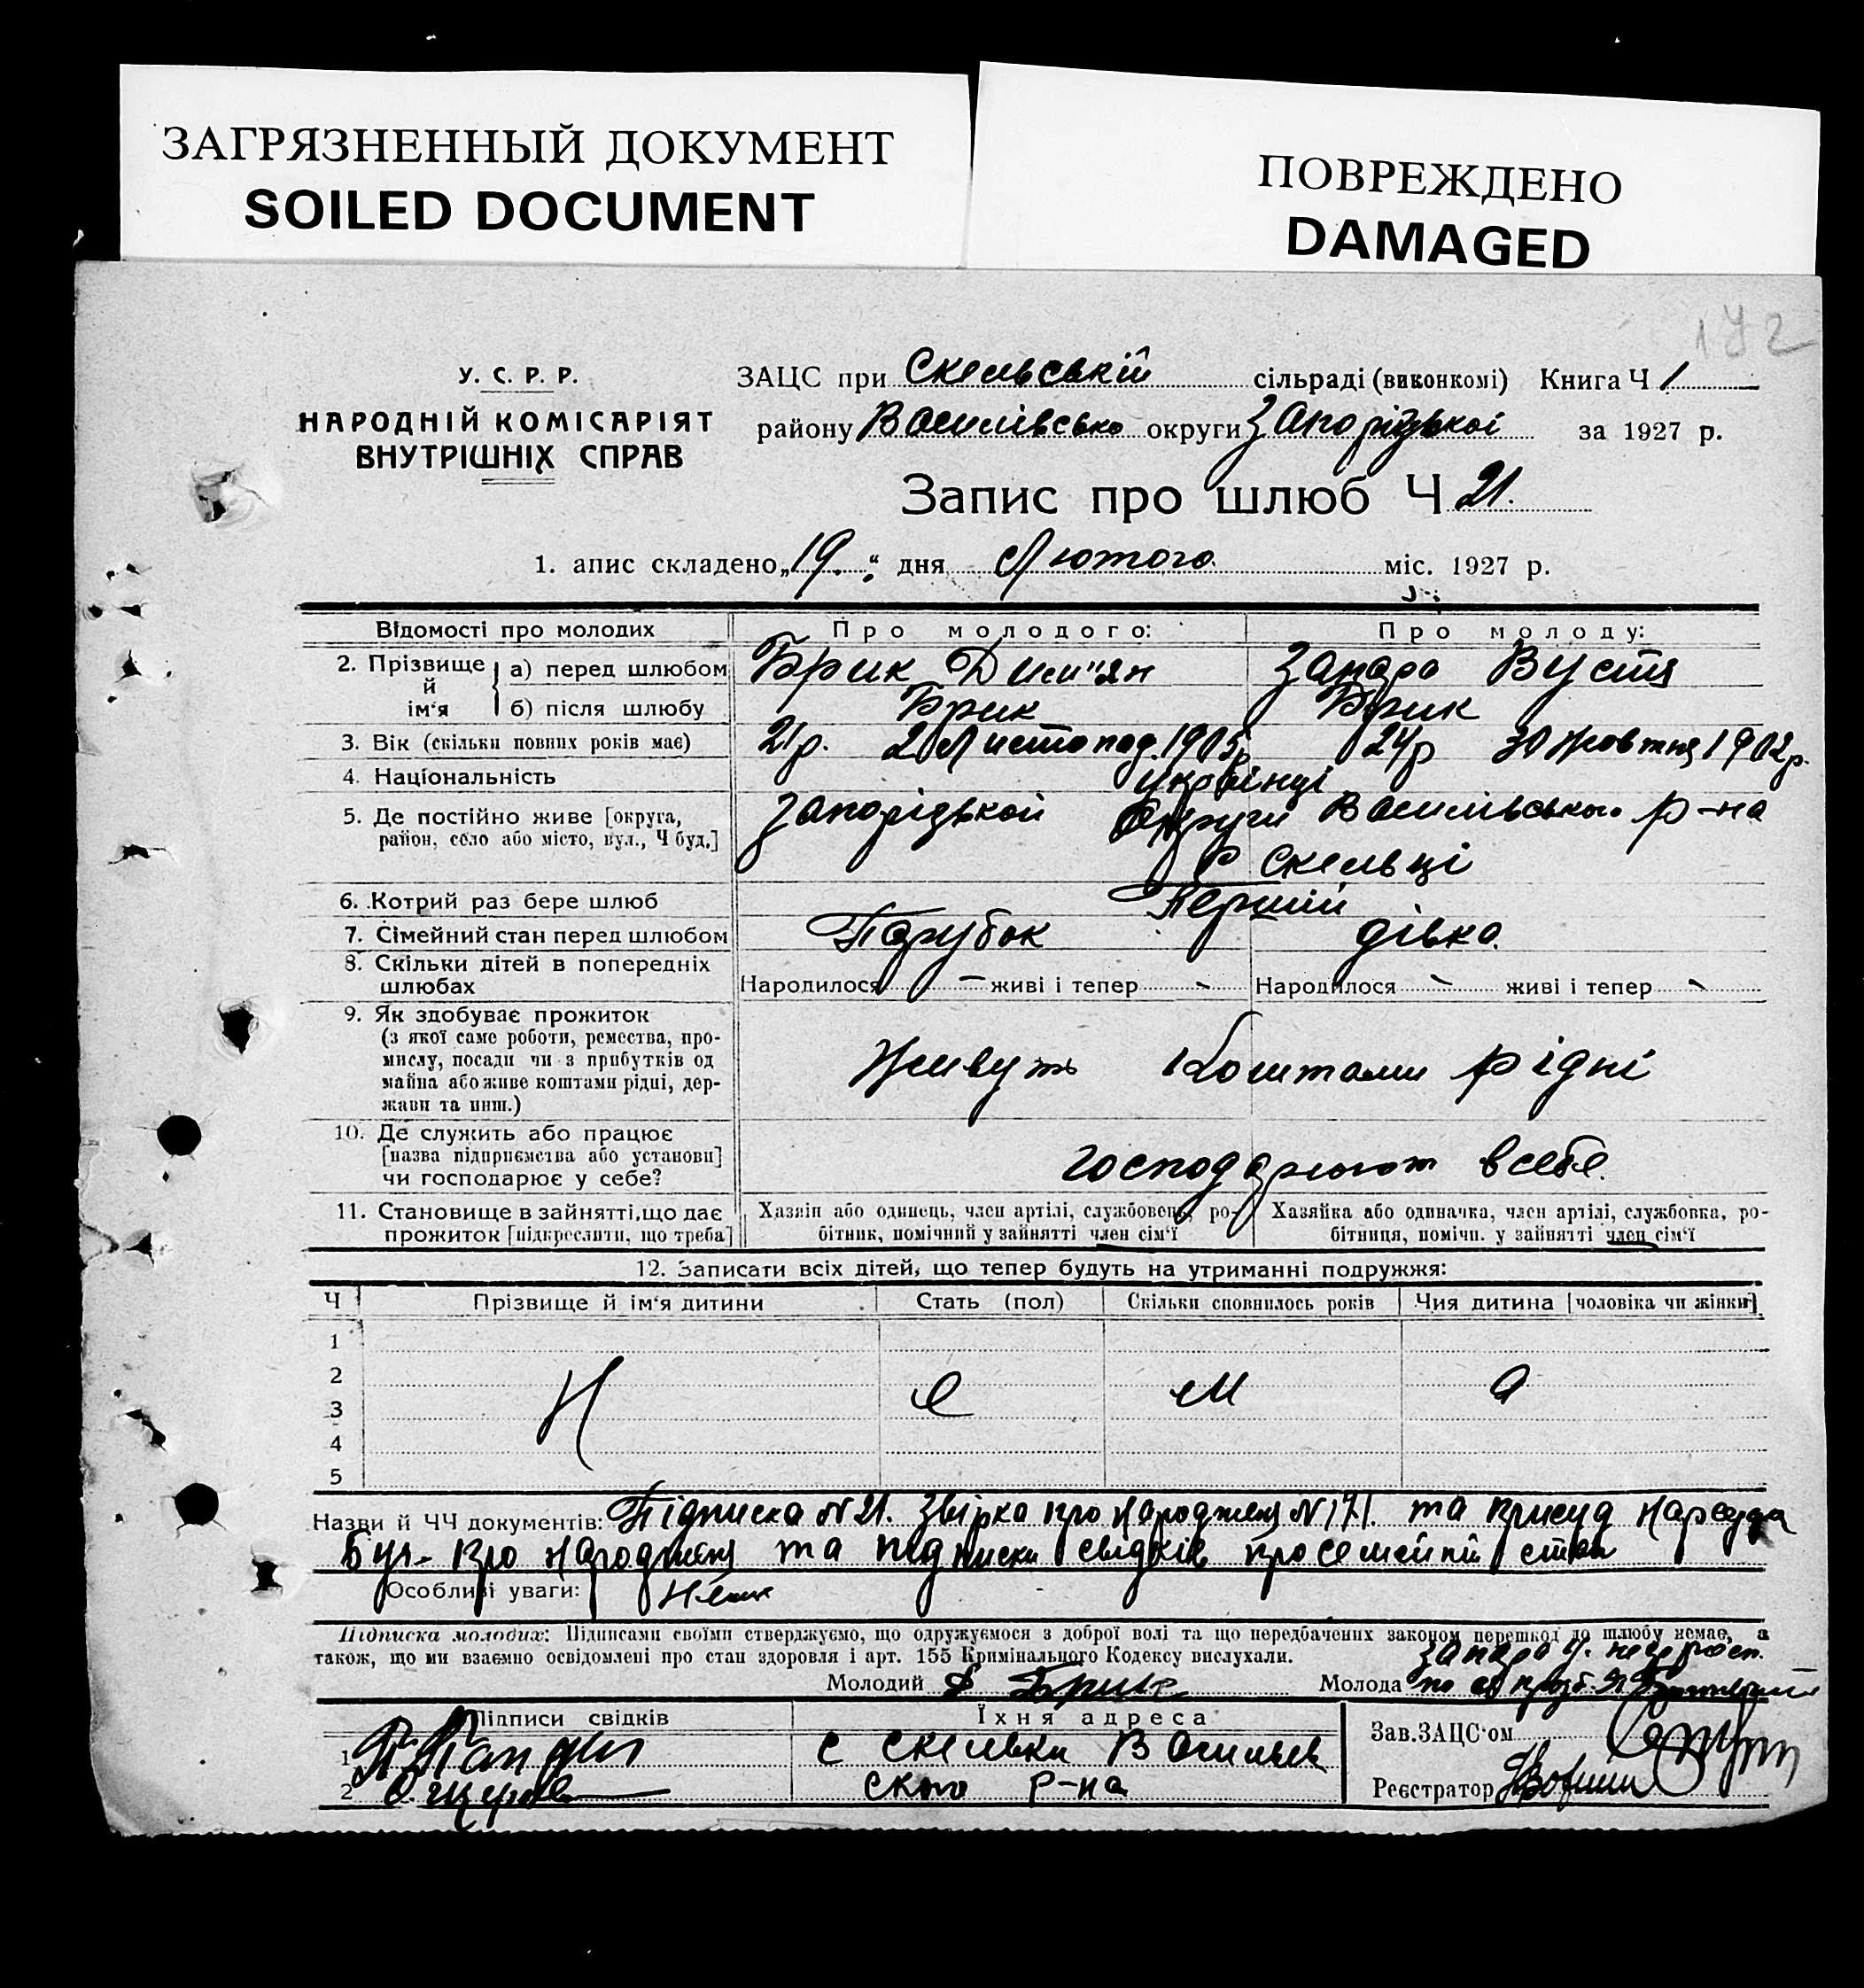 ЗАГРЯЗНЕННЫЙ ДОКУМЕНТ
SOILED DOCUMENT
ПОВРЕЖДЕНО
DAMAGED
172
У. С. Р. Р.
НАРОДНІЙ КОМІСАРІЯТ
ВНУТРІШНІХ СПРАВ
ЗАЦС при Скельській сільраді (виконкомі) Книга Ч 1
району Василівсько округи Запорізької за 1927 р.
Запис про шлюб Ч 21.
1. апис складено „19." дня Лютого міс. 1927 р.
Відомості про молодих Про молодого: Про молоду:
2. Прізвище й ім'я
а) перед шлюбом Брик Дим"ян Запара Вустя
б) після шлюбу Брик Брик
3. Вік (скільки повних років має) 21р. 2 Листопад. 1905р 24р 30 Жовтня 1902р.
4. Національність Українці
5. Де постійно живе [округа, Запорізькой Округи Василівського р-на
район, село або місто, вул., Ч буд.]
Скельці
6. Котрий раз бере шлюб Перший
7. Сімейний стан перед шлюбом Парубок дівка.
8. Скільки дітей в попередніх
шлюбах Народилося – живі і тепер - Народилося - живі і тепер -
9. Як здобуває прожиток
(з якої саме роботи, ремества, про-
мислу, посади чи з прибутків од
майна або живе коштами рідні, дер-
жави та инш.)
Живуть Коштами рідні
10. Де служить або працює
[назва підприємства або установи]
чи господарює у себе?
господарюют в себе.
11. Становище в зайнятті, що дає Хазяїн або одинець, член артілі, службовець, ро- Хазяйка або одиначка, член артілі, службовка, ро-
прожиток [підкреслити, що треба] бітник, помічний у зайнятті член сім'ї бітниця, помічн. у зайнятті член сім'ї
12. Записати всіх дітей, що тепер будуть на утриманні подружжя:
Ч Прізвище й ім'я дитини Стать (пол) Скільки сповнилось років Чия дитина [чоловіка чи жінки]
1
2
3
4
5
Н е м а
Назви й ЧЧ документів: Підписка № 21. Звірка про народження № 171. та присуд Нарсуда
про народжен та підписки свідків про семейній стан
Особливі уваги: Немає
Підписка молодих: Підписами своїми стверджуємо, що одружуємося з доброї волі та що передбачених законом перешкод до шлюбу немає, а
також, що ми взаємно освідомлені про стан здоровля і арт. 155 Кримінального Кодексу вислухали.
Запара
Молодий Д Брик Молода
Підписи свідків Їхня адреса
1 с Скельки Васильев
2 ского р-на
Зав. ЗАЦС'ом
Реєстратор